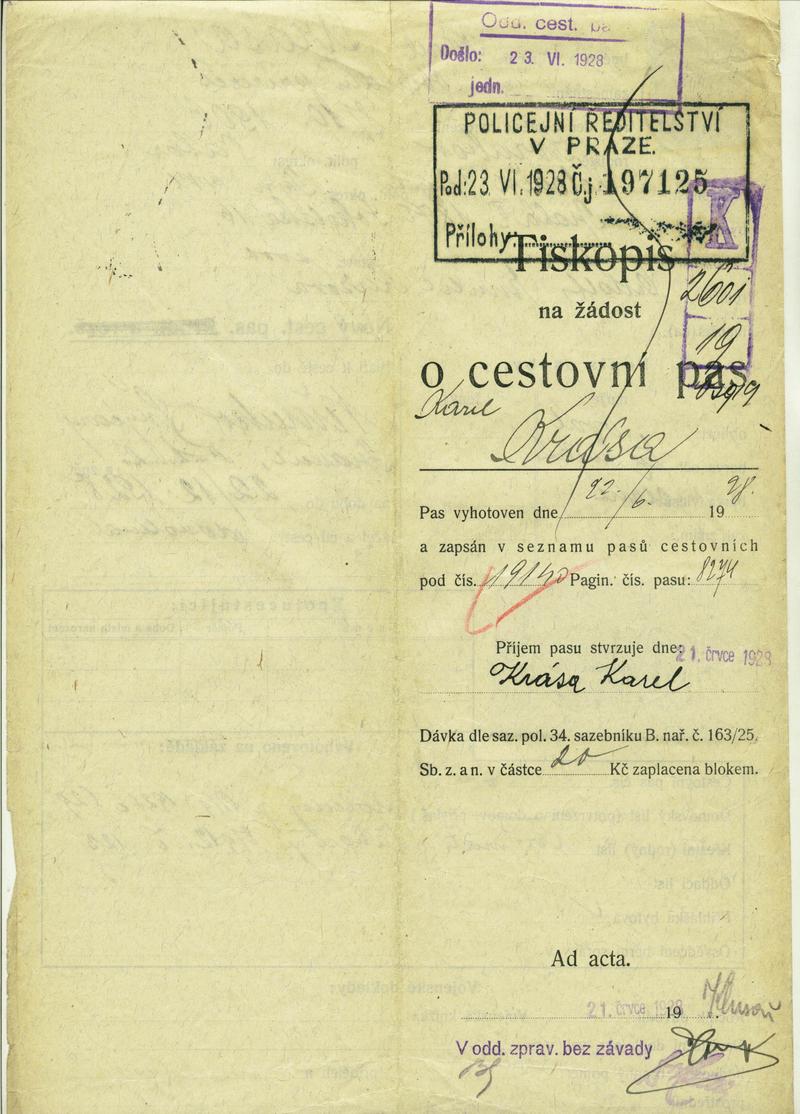 Odd. cest.
Došlo: 23. VI. 1928
jedn.
POLICEJNÍ ŘEDITELSTVÍ
V PRAZE.
Pod: 23. VI. 1928 Č.j. 197125
Přílohy:
K
Tiskopis
2601
na žádost
19
o cestovní pas
Karel
Krása
Pas vyhotoven dne 22/6. 1928.
a zapsán v seznamu pasů cestovních
pod čís. 19140 Pagin. čís. pasu: 8274
Příjem pasu stvrzuje dne: 21. črvce 1928
Krása Karel
Dávka dle saz. pol. 34. sazebníku B. nař. č. 163/25.
Sb. z. a n. v částce 20 Kč zaplacena blokem.
Ad acta.
21. črvce 1928 19
V odd. zprav. bez závady